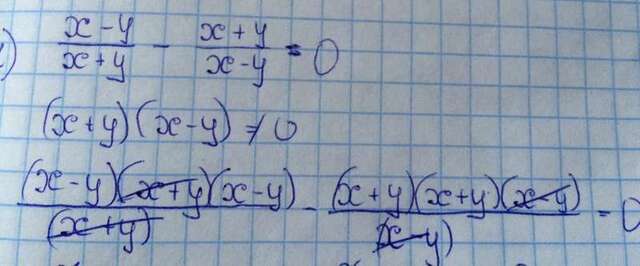 ) (x - y)/(x + y) - (x + y)/(x - y) = 0
(x + y)(x - y) ≠ 0
((x - y)(x + y)(x - y))/((x + y)) - ((x + y)(x + y)(x - y))/(x - y)) = 0